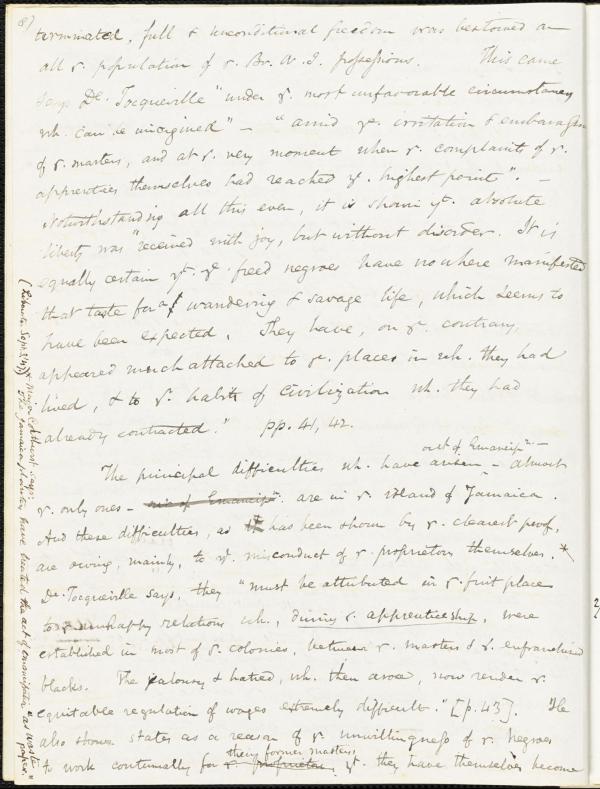 8)
terminated, full & unconditional freedom was bestowed on
all ye. population of ye. Br. W. I. possessions. This came
says De. Tocqueville "under ye. most unfavorable circumstances
wh. can be imagined" – "amid ye. irritation & embarassment
of ye. masters, and at ye. very moment when ye. complaints of ye.
apprentices themselves had reached ye. highest point". –
Notwithstanding all this even, it is shown yt. absolute
liberty was "received with joy, but without disorder. It is
equally certain yt. ye. freed negroes have no where manifested
that taste for a wandering & savage life, which seems to
have been expected. They have, on ye. contrary,
appeared much attached to ye. places in wh. they had
lived, & to ye. habits of civilization wh. they had
already contracted." pp. 41, 42.
out of Emancipn. –
The principal difficulties wh. have arisen – almost
ye. only ones – are in ye. island of Jamaica.
And these difficulties, as has been shown by ye. clearest proof,
are owing, mainly, to ye. misconduct of ye. proprietors themselves. *
De. Tocqueville says, they "must be attributed in ye. first place
to ye. unhappy relations wh., during ye. apprenticeship, were
established in most of ye. colonies, between ye. masters & ye. enfranchised
blacks. The jealousy & hatred, wh. then arose, now render ye.
equitable regulation of wages extremely difficult." [p. 43]. He
also states as a reason of ye. unwillingness of ye. Negroes
their former masters
to work continually for ye. proprietors, yt. they have themselves become
* Major Colthurst says: "The Jamaica planters have treated the act of emancipation as waste paper."
(Liberator Sept.